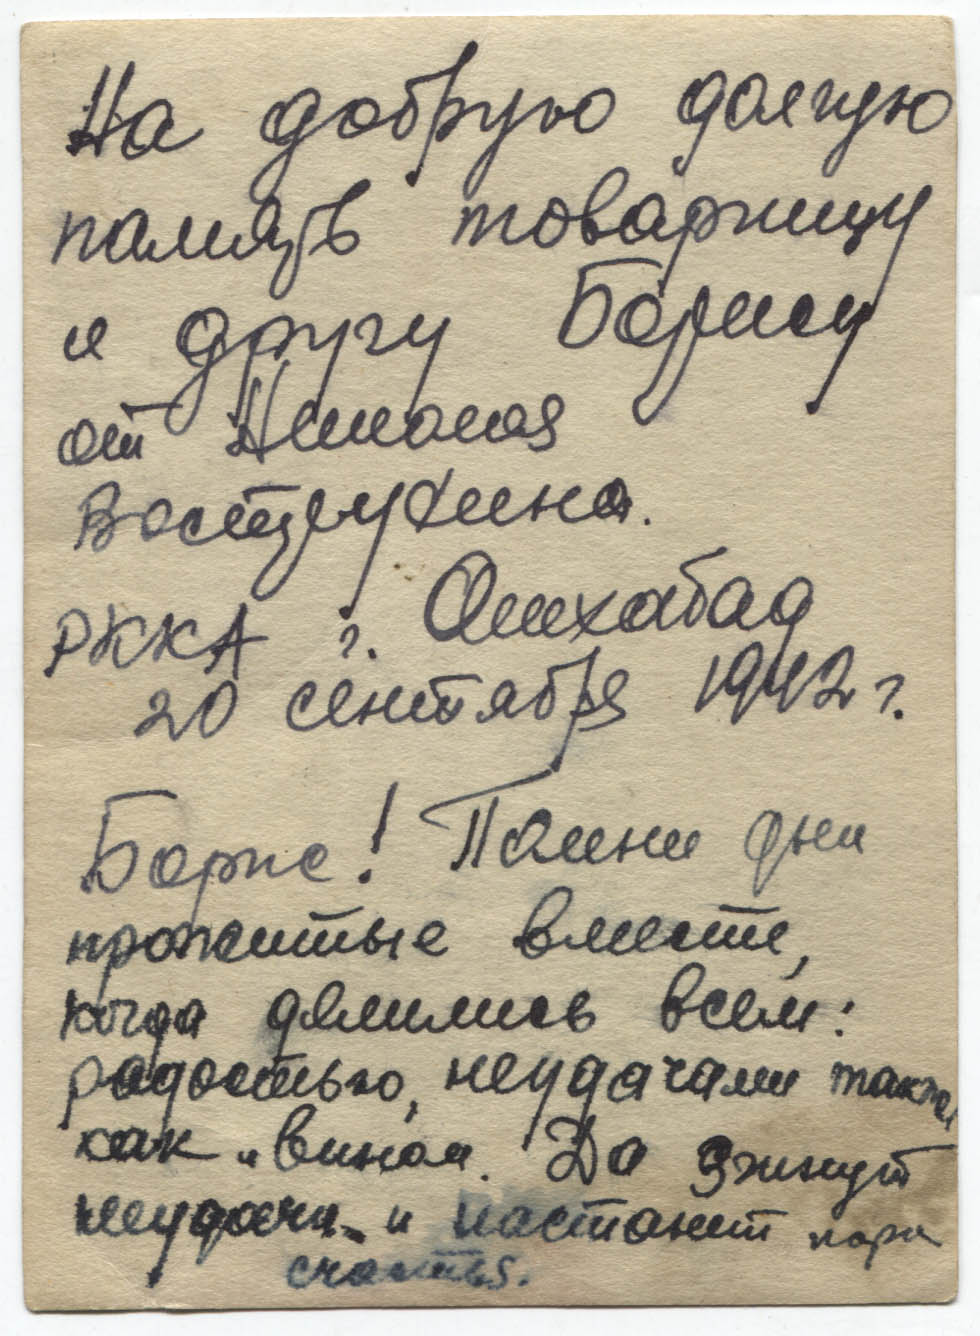 На добрую долгую
память товарищу
и другу Борису
от Николая
Вострухина.
РККА г. Ашхабад
20 сентября 1942 г.
Борис! Помни дни
прожитые вместе,
когда делились всем:
радостью, неудачами также
как и вином. Да згинут
неудачи и настанет пора
счастья.